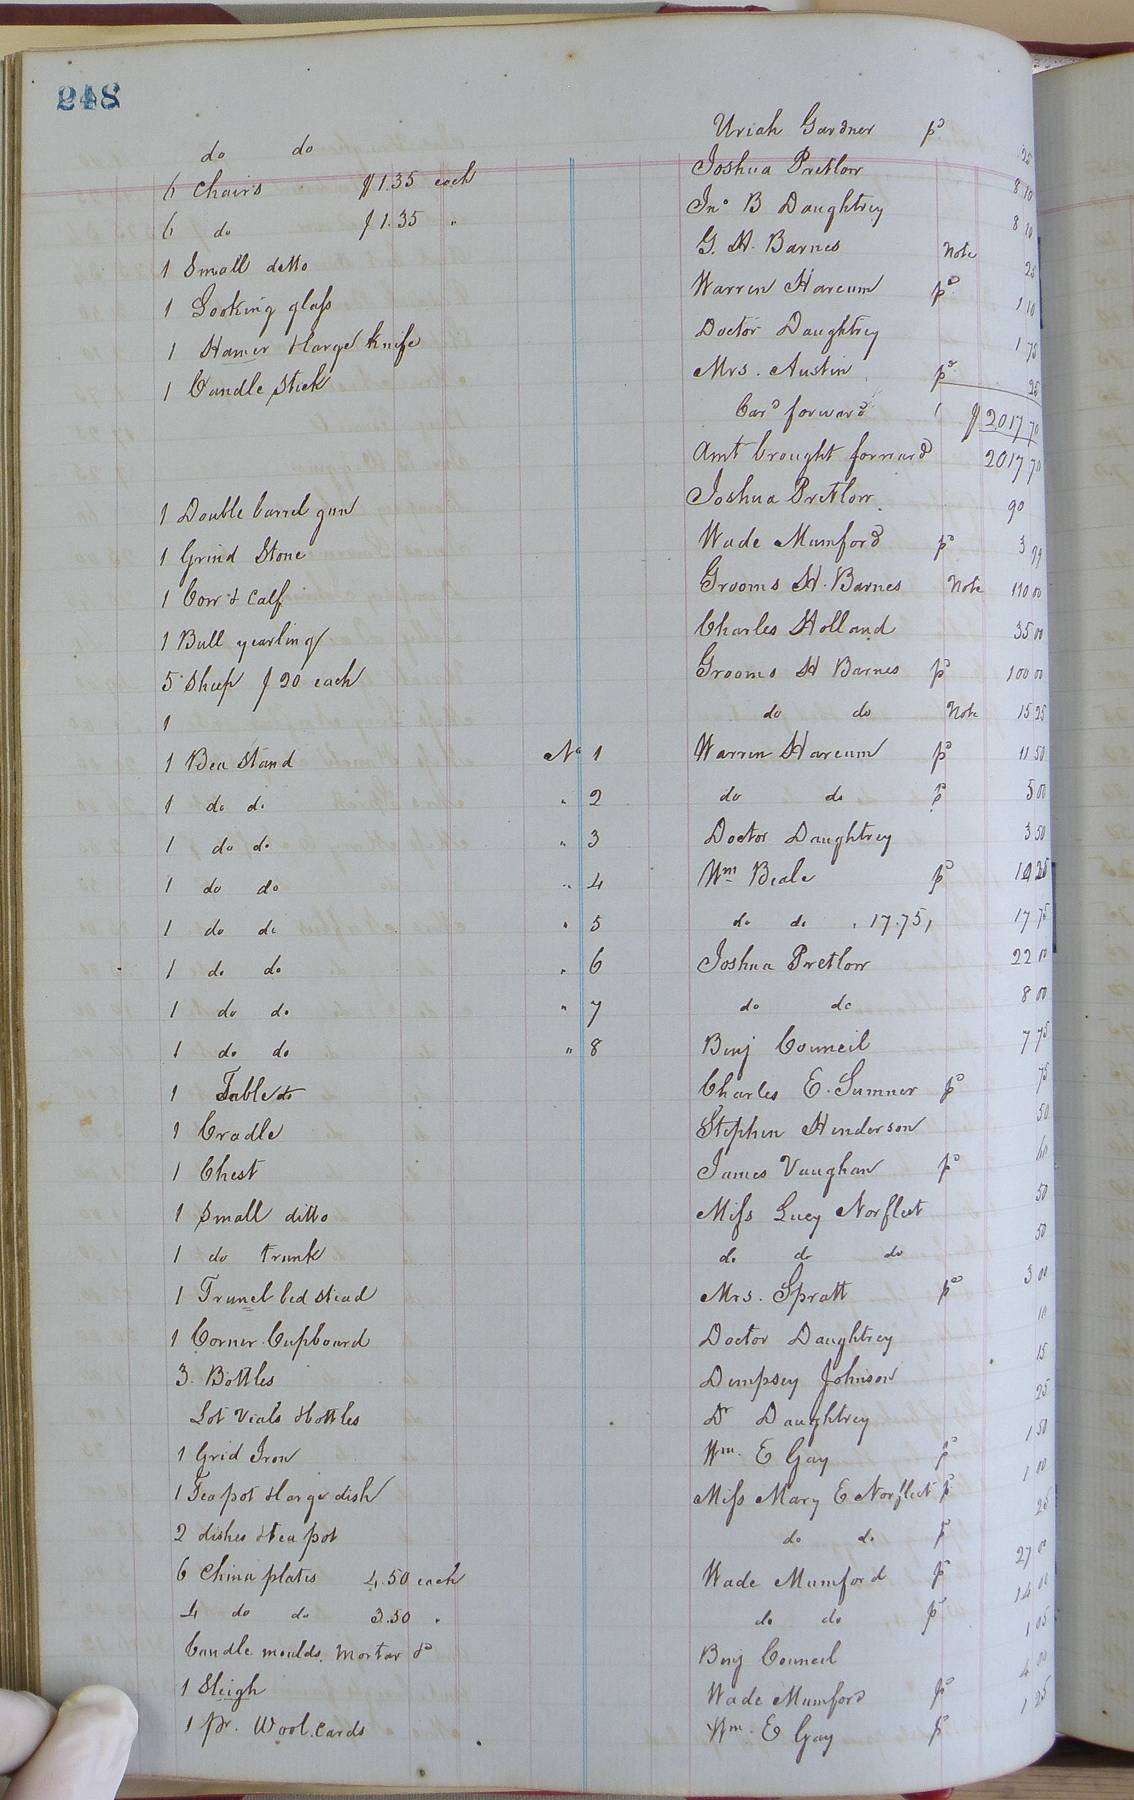 248
do do Uriah Gardner pd 25
6 Chairs $1.35 each Joshua Pretlow 8 10
6 do $1.35 " Jno B Daughtrey 8 10
1 Small ditto G. H. Barnes Note 25
1 Looking glass Warren Harcum pd 1 10
1 Hamer & large Knife Doctor Daughtrey 1 75
1 Candle Stick Mrs. Austin pd 25
Card forward $ 2017 70
Amt brought forward 2017 70
1 Double barrel gun Joshua Pretlow 90
1 Grind Stone Wade Mumford pd 3
1 Cow & Calf Grooms H. Barnes Note 110 00
1 Bull yearling Charles Holland 35 00
5 Sheep $20 each Grooms H Barnes pd 100 00
1 do do Note 15 25
1 Bea Stand No 1 Warren Harcum pd 11 50
1 do do " 2 do do pd 5 00
1 do do " 3 Doctor Daughtrey 3 50
1 do do " 4 Wm Beale pd 25
1 do do " 5 do do " 17.75, 17 75
1 do do " 6 Joshua Pretlow 22 00
1 do do " 7 do do 8 00
1 do do " 8 Benj Council 7 75
1 Table Charles E. Sumner pd 75
1 Cradle Stephen Henderson 50
1 Chest James Vaughan pd
1 Small ditto Miss Lucy Norfleet 50
1 do trunk do do do 50
1 Trunel bed stead Mrs. Spratt pd 3 00
1 Corner Cupboard Doctor Daughtrey 10
3 Bottles Dempsey Johnson 15
Lot Vials & bottles Dr Daughtrey 25
1 Grid Iron Wm. E Gay pd 1 50
1 Tea pot & large dish Miss Mary E Norfleet pd 1 00
2 dishes & tea pot do do pd 25
6 China plates 4.50 each Wade Mumford pd 27 00
4 do do 3.50 " do do pd 14 00
Candle moulds, Mortar &c Benj Council 1 05
1 Sleigh Wade Mumford pd 4 00
1 pr. Wool.Cards Wm. E Gay pd 1 25